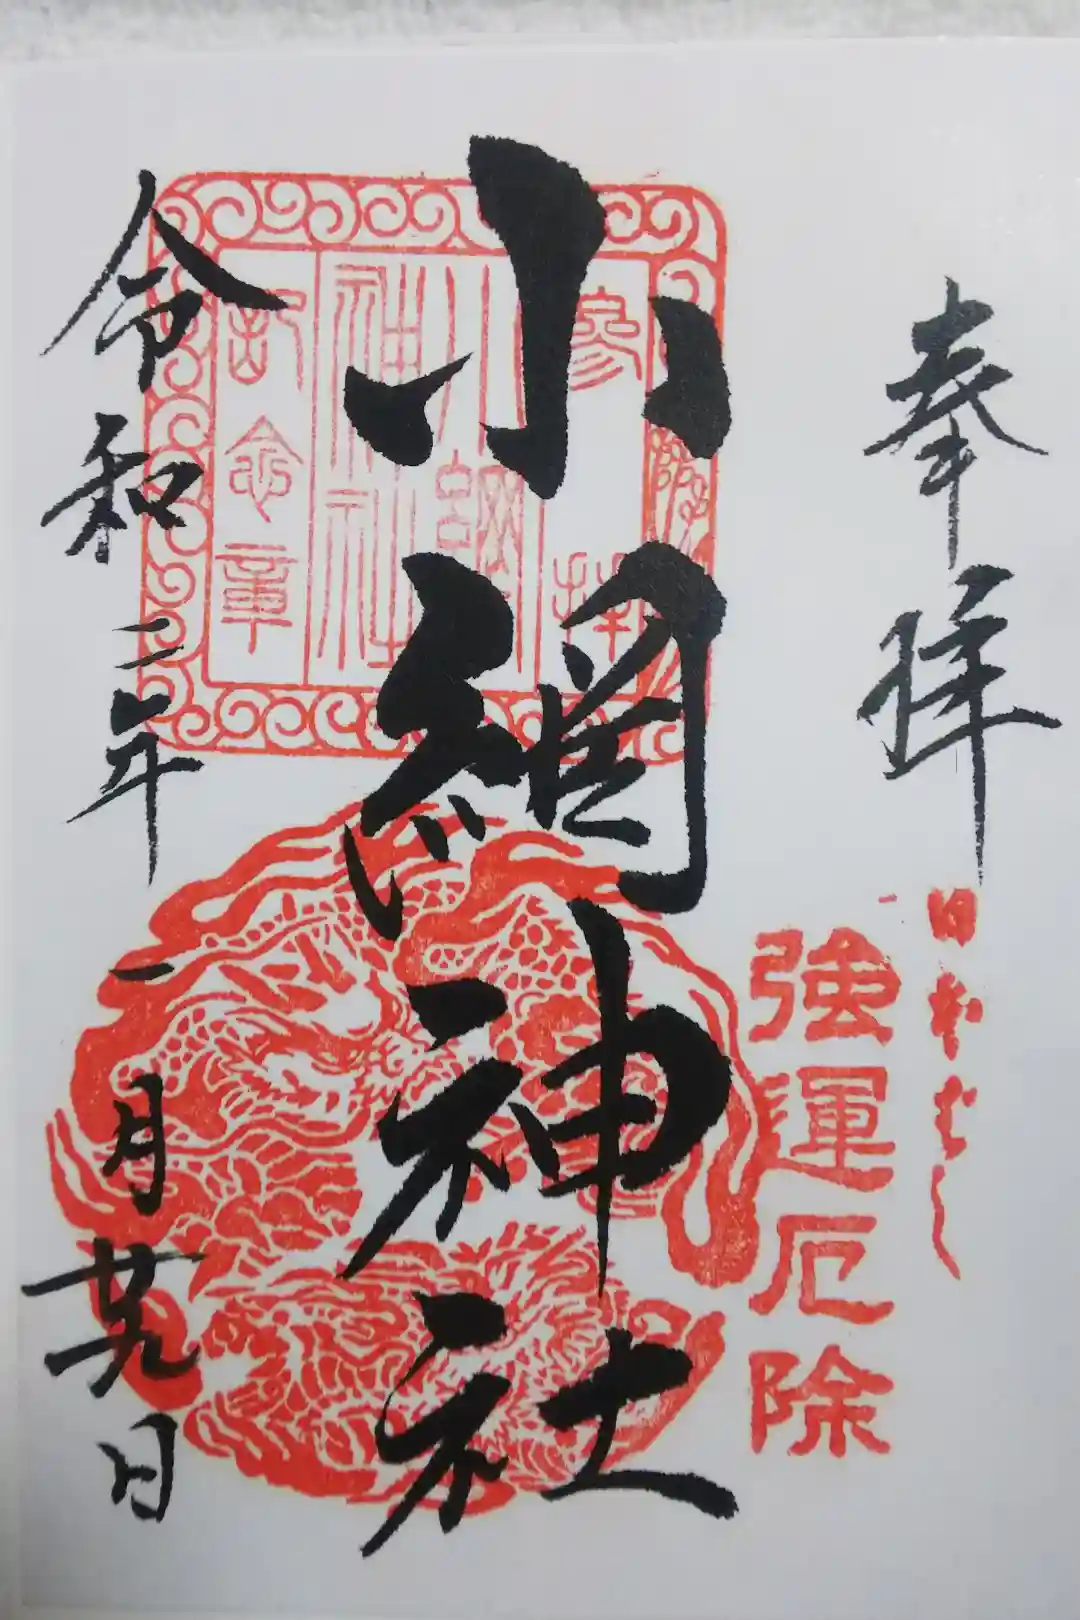 奉拝
日本ばし
強運厄除
小網神社
令和二年一月廿九日
参拝
小網
神社
記念章